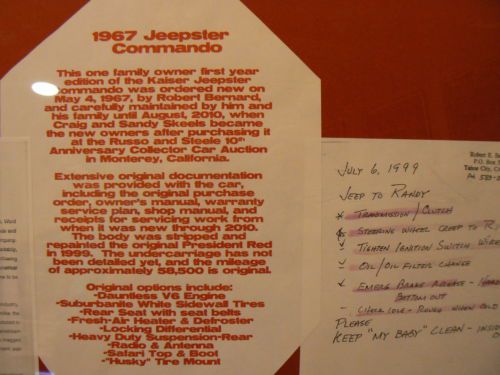 1967 Jeepster
Commando
This one family owner first year
edition of the Kaiser Jeepster
Commando was ordered new on
May 4, 1967, by Robert Bernard,
and carefully maintained by him and
his family until August, 2010, when
Craig and Sandy Skeels became
the new owners after purchasing it
at the Russo and Steele 10th
Anniversary Collector Car Auction
in Monterey, California.
Extensive original documentation
was provided with the car,
including the original purchase
order, owner's manual, warranty
service plan, shop manual, and
receipts for servicing work from
when it was new through 2010.
The body was stripped and
repainted the original President Red
in 1999. The undercarriage has not
been detailed yet, and the mileage
of approximately 58,500 is original.
Original options include:
-Dauntless V6 Engine
-Suburbanite White Sidewall Tires
-Rear Seat with seat belts
-Fresh-Air Heater & Defroster
-Locking Differential
-Heavy Duty Suspension-Rear
-Radio & Antenna
-Safari Top & Boot
-"Husky" Tire Mount
Robert E. Be
P.O. Box
Tahoe City, C
July 6, 1999
Jeep to Randy
Transmission/Clutch
Steering Wheel Creep to R
Tighten Ignition Switch Wires
Oil/Oil Filter Change
Emerg Brake Adjust -
Bottom out
Check Idle - Rough when cold
Please
Keep "My Baby" Clean - Inside